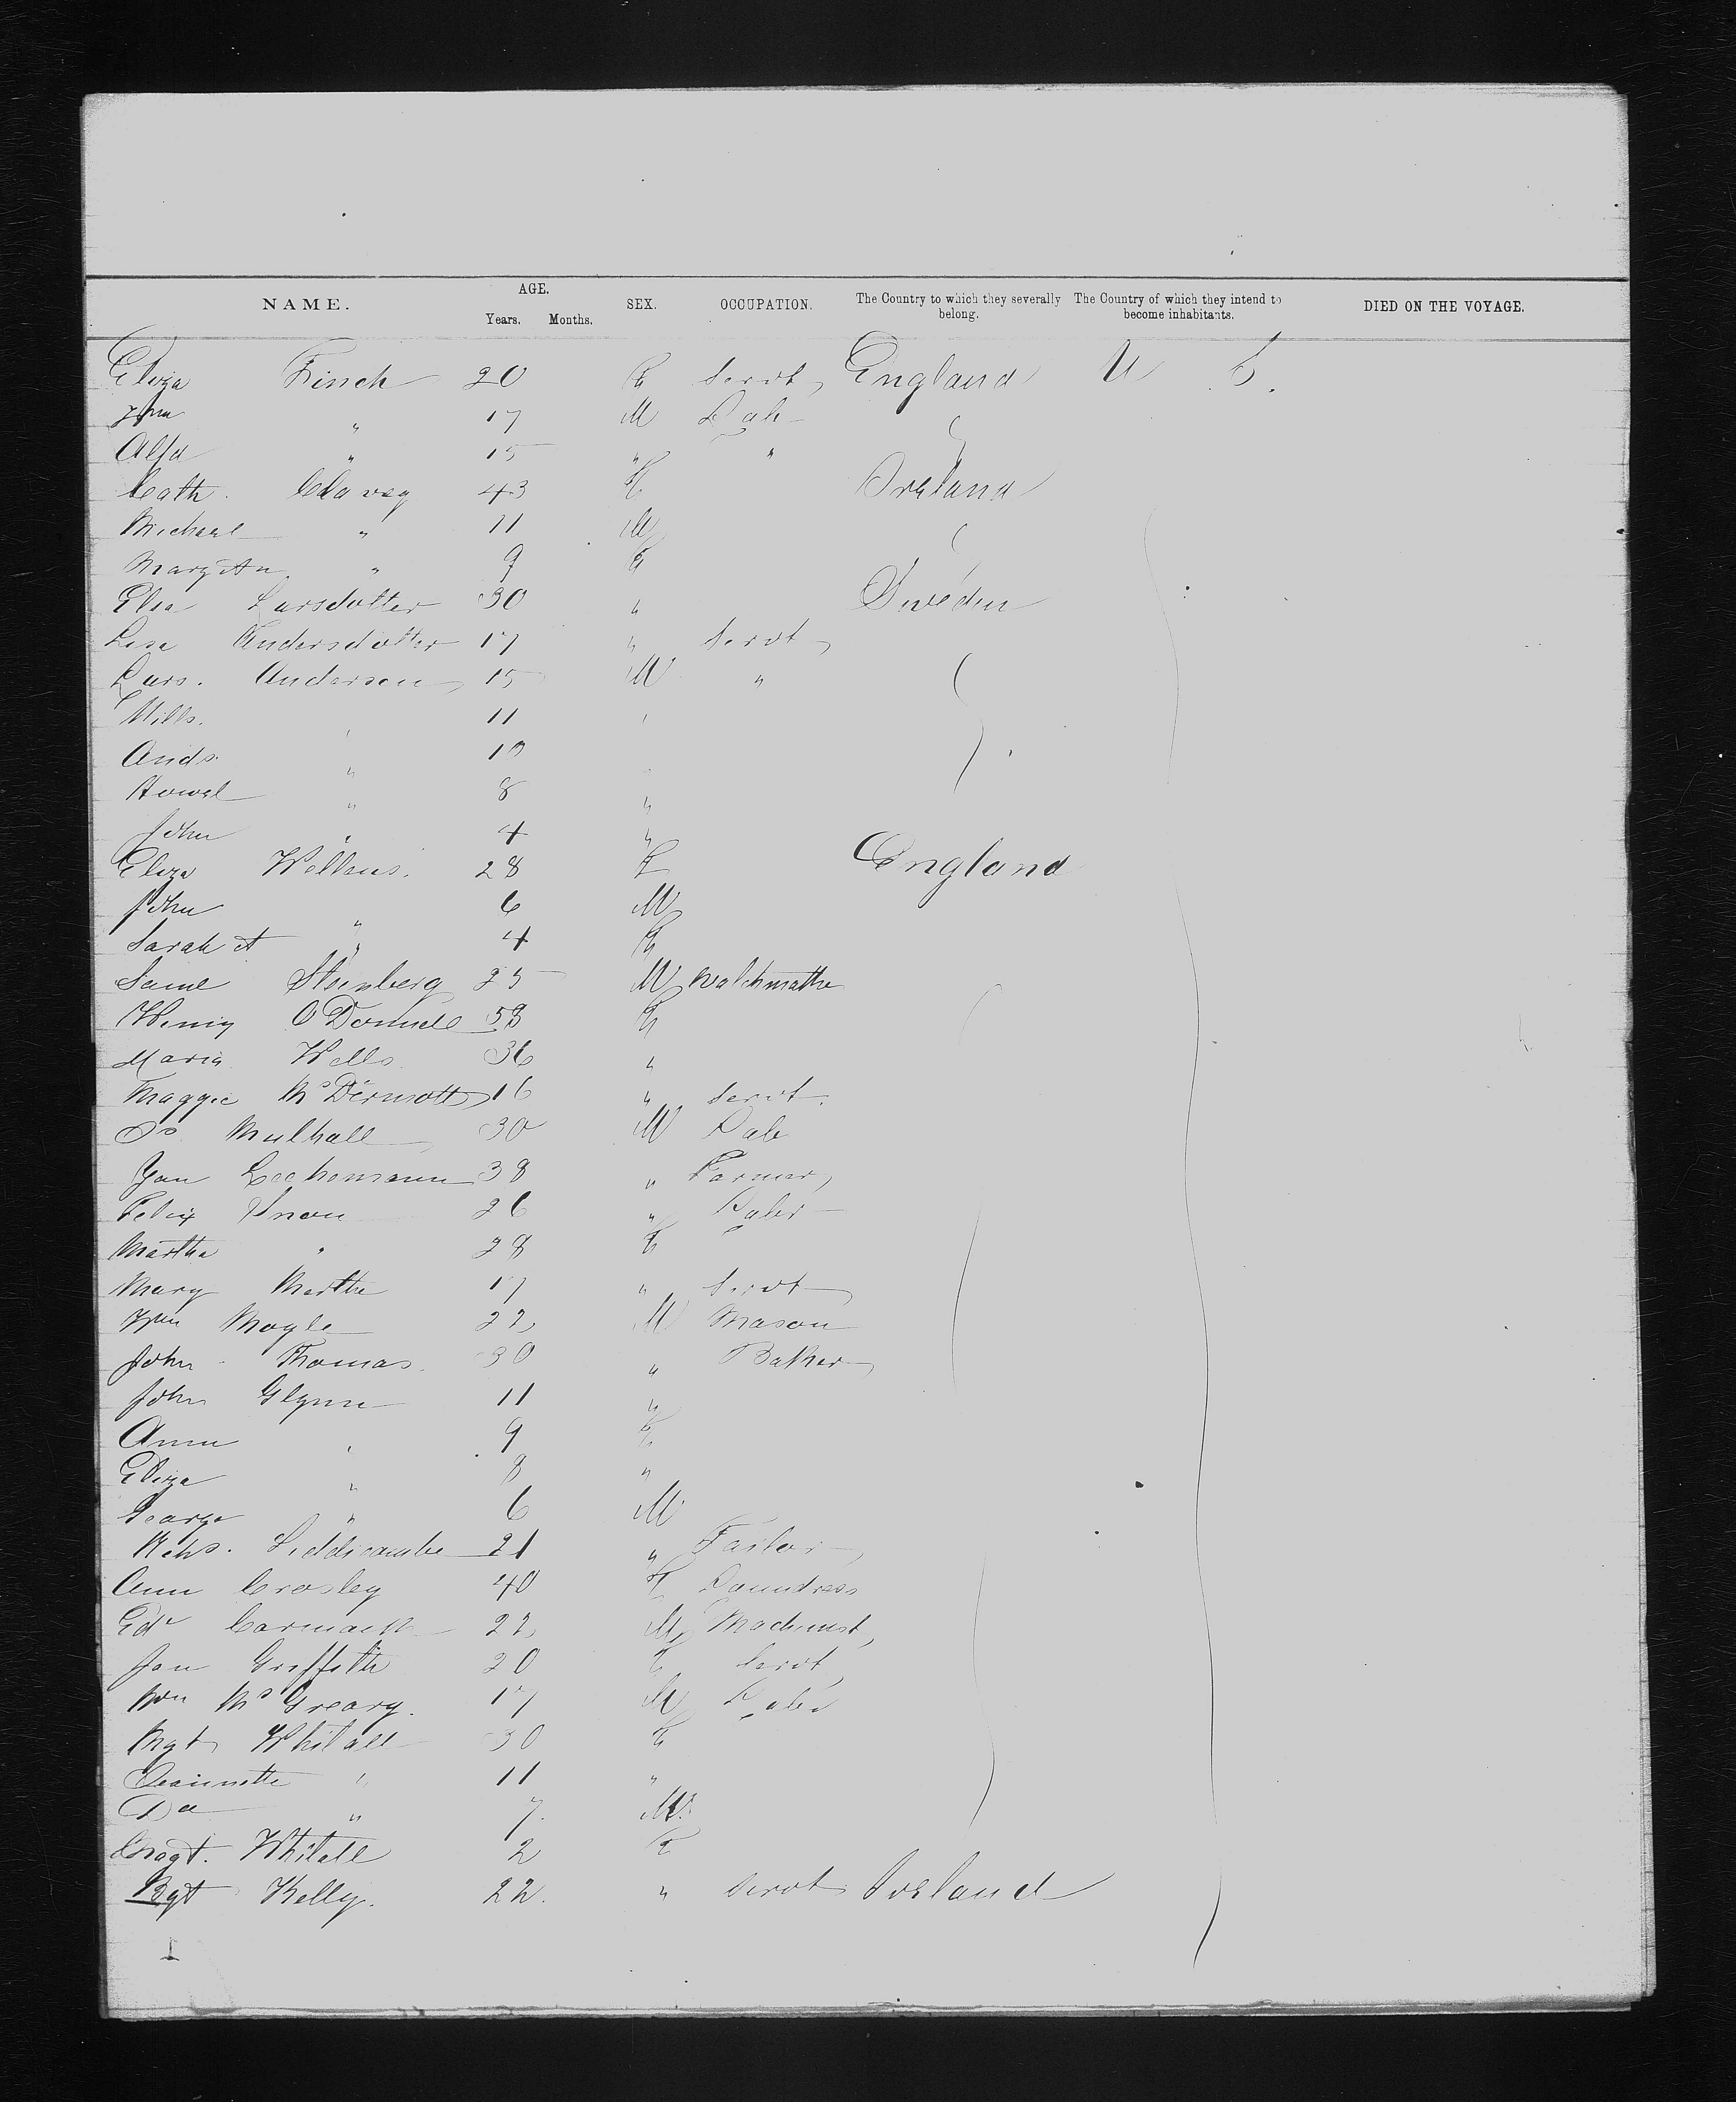 NAME. AGE. Years. Months. SEX. OCCUPATION. The Country to which they severally belong. The Country of which they intend to become inhabitants. DIED ON THE VOYAGE.
Eliza Finch 20 F Servt England U S.
Wm " 17 M Lab
Alfd " 15 " "
Cath. 43 F Ireland
Michael " 11 M
Mary An " 9 F
Elsa Larsdotter 30 " Sweden
Lisa Andersdotter 17 " Servt
Lars. Anderson 15 M "
Nills. " 11 "
Ands. " 10
" 8 "
John " 4 "
Eliza 28 F England
John " 6 M
Sarah A " 4 F
Saml Steinberg 25 M
O'Donnell 53 F
Maria Wells 36 "
Maggie McDermott 16 " Servt.
Mulhall 30 M Lab
38 " Farmer
Felix 26 " Labr
Martha " 28 F
Mary Martha 17 " Servt
Wm Moyle 22 M Mason
John Thomas 30 " Baker
John Glynn 11 "
Ann " 9 F
Eliza " 8 "
George " 6 M
Liddicombe 21 " Tailor
Ann Crosley 40 F Laundress
Edw 22 M Machinist
Jan Griffith 20 F Servt
Wm McGreary. 17 M Labr
Mgt Whitall 30 F
Jeannette " 11 "
Da " 7. M
Magt. Whitall 2 F
Bgt Kelly. 22. " Servt Ireland